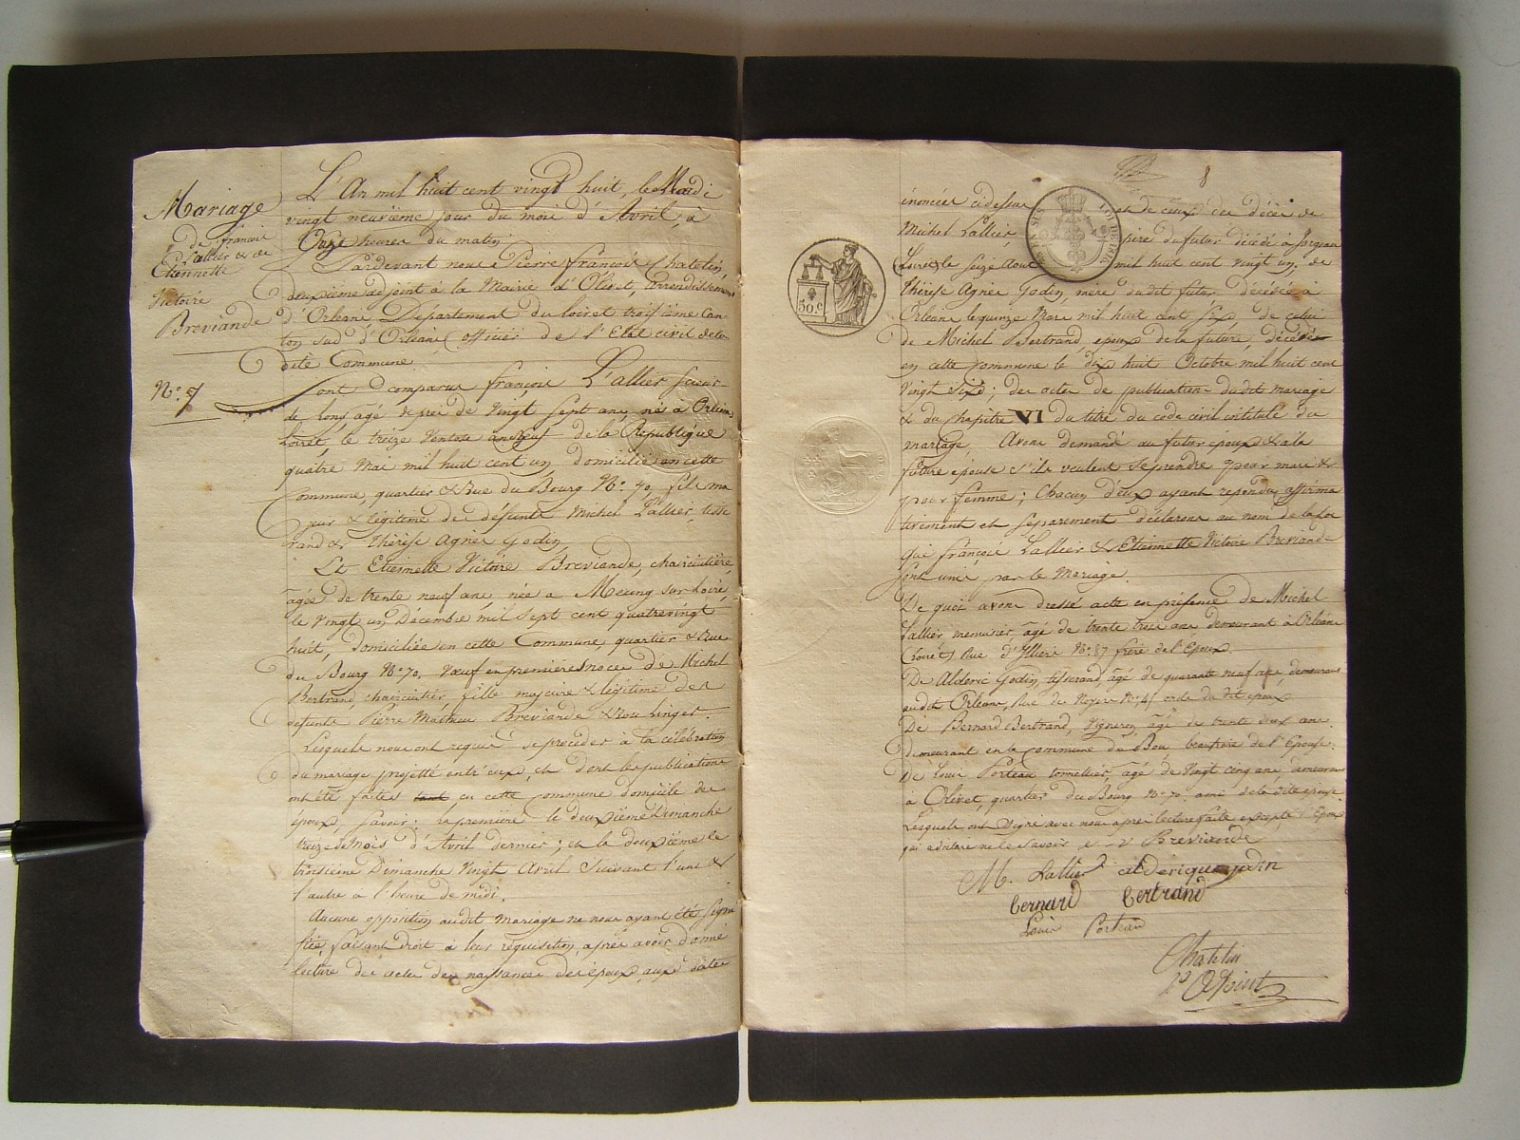 Mariage
de françois
Lallier & de
Etiennette
Victoire
Breviande
N.° 7
L'An mil huit cent vingt huit, le Mardi
vingt neuvième jour du mois d'Avril, à
Onze heures du matin
Pardevant nous Pierre françois Chatelin,
deuxième adjoint à la Mairie d'Olivet, arrondissement
d'Orléans Département du loiret troisième Can
ton sud d'Orléans, officier de l'Etat civil de la
dite Commune.
Sont comparus françois L'allier scieur
de long agé de près de vingt sept ans, né à Orléans
Loiret, le treize Ventose an Neuf de la République
quatre Mars mil huit cent un, domicilié en cette
Commune, quartier & Rue du Bourg N.° 70, fils ma
jeur & légitime de défunts Michel Lallier, tisse
rand & Thérèse Agnès Godin
Et Etiennette Victoire Breviande, chaircuitière,
âgée de trente neuf ans, née à Meung sur Loire,
le vingt un Décembre mil sept cent quatrevingt
huit, domiciliée en cette Commune, quartier & Rue
du Bourg N.° 70, Veuve en premières noces de Michel
Bertrand, chaircuitier, fille majeure & légitime des
défunts Pierre Mathieu Breviande &
Lesquels nous ont requis de procéder à la célébration
du mariage projetté entr'eux, et dont les publications
ont été faites en cette commune domicile des
époux, savoir: la première le deuxième Dimanche
treize du mois d'Avril dernier; et la deuxième le
troisième Dimanche vingt Avril suivant l'une &
l'autre à l'heure de midi.
Aucune opposition audit mariage ne nous ayant été signi
fiée, faisant droit à leur réquisition, après avoir donné
lecture des actes de naissances des époux, aux dates
8
énoncées cidessus de ceux des décès de
Michel Lallier, père du futur décédé à Jargeau
(Loiret) le seize Aout mil huit cent vingt un. de
Thérèse Agnès Godin, mère dudit futur décédée à
Orléans le quinze Mars mil huit cent six, de celui
de Michel Bertrand, époux de la future, décédé
en cette commune le dix huit Octobre mil huit cent
vingt six; des actes de publication dudit mariage
& du chapitre VI du titre du code civil intitulé du
mariage, Avons demandé au futur époux & à la
future épouse s'ils veulent se prendre pour mari &
pour femme; Chacun d'eux ayant répondu affirma
tivement et séparément déclarons au nom de la Loi
que françois Lallier & Etiennette Victoire Breviande
sont unis par le Mariage.
De quoi avons dressé acte en présence de Michel
Lallier, menuisier, âgé de trente trois ans demeurant à Orléans
(Loiret) Rue d'Illiers N.° 87 frère de l'Epoux.
De Alderic Godin, tisserand, âgé de quarante neuf ans, demeurant
audit Orléans, Rue de N.° 41 oncle du dit époux
De Bernard Bertrand, Vigneron, âgé de trente deux ans.
demeurant en la commune de Bou beaufrère de l'Epouse.
De Louis Porteau tonnelier, âgé de vingt cinq ans, demeurant
à Olivet, quartier du Bourg N.° 70. ami de la dite épouse.
Lesquels ont signé avec nous après lecture faite excepté l'Epoux
qui a déclaré ne le savoir e v Breviande
M. Lallier aldérique godin
bernard bertrand
Louis Porteau
Chatelin
50.c